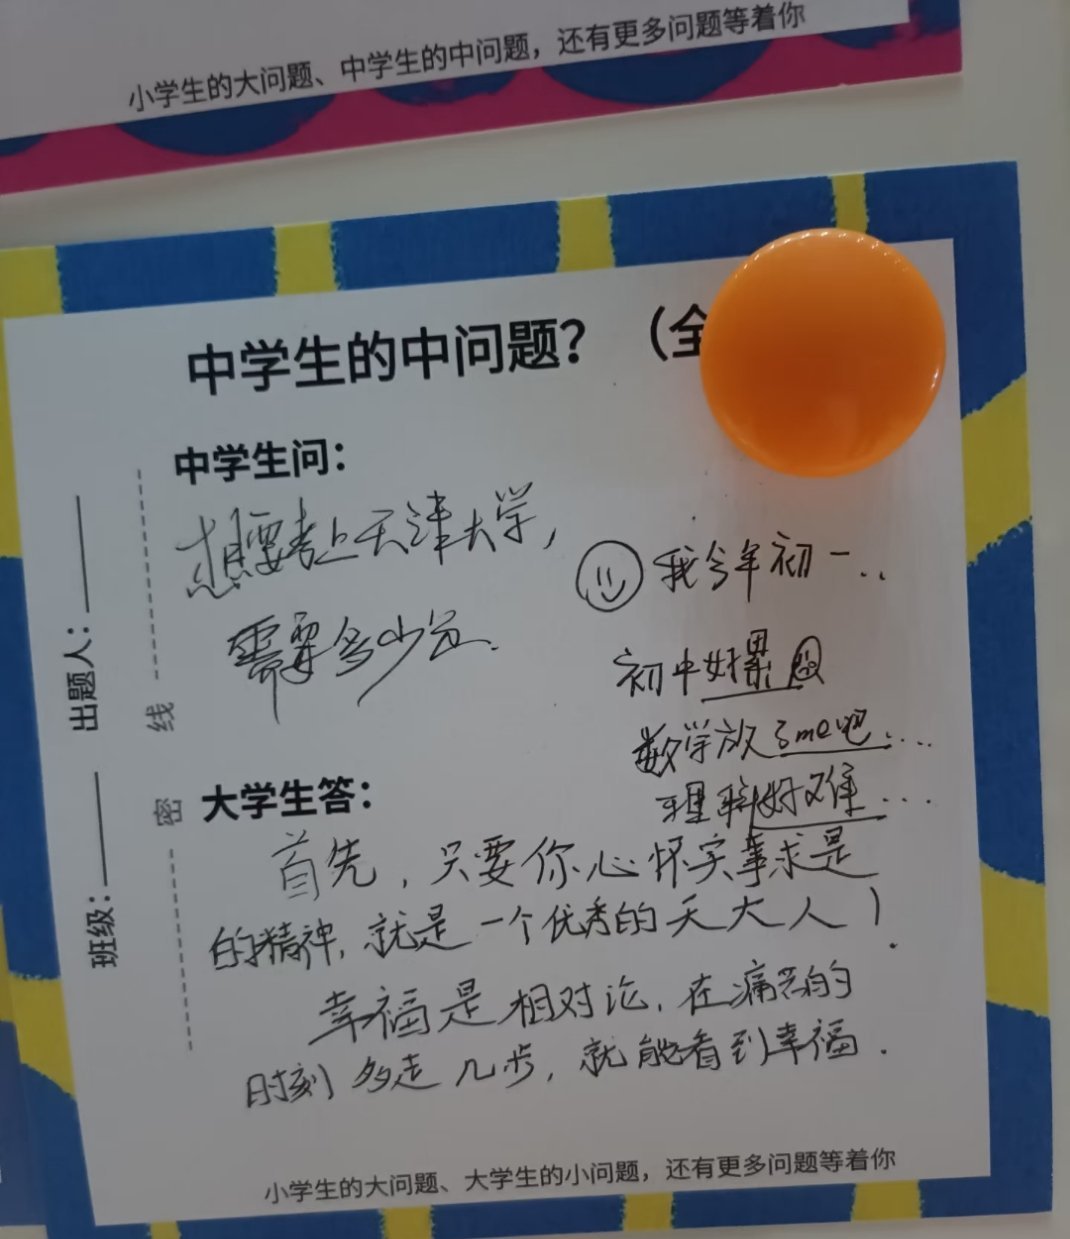 小学生的大问题、中学生的中问题，还有更多问题等着你
中学生的中问题？（全
中学生问：
想要考上天津大学，
需要多少分.
我今年初一..
初中好累
数学放了me吧....
理科好难...
大学生答：
首先，只要你心怀实事求是
的精神，就是一个优秀的天大人！
幸福是相对论，在痛苦的
时刻多走几步，就能看到幸福.
小学生的大问题、大学生的小问题，还有更多问题等着你
班级：
出题人：
密
线